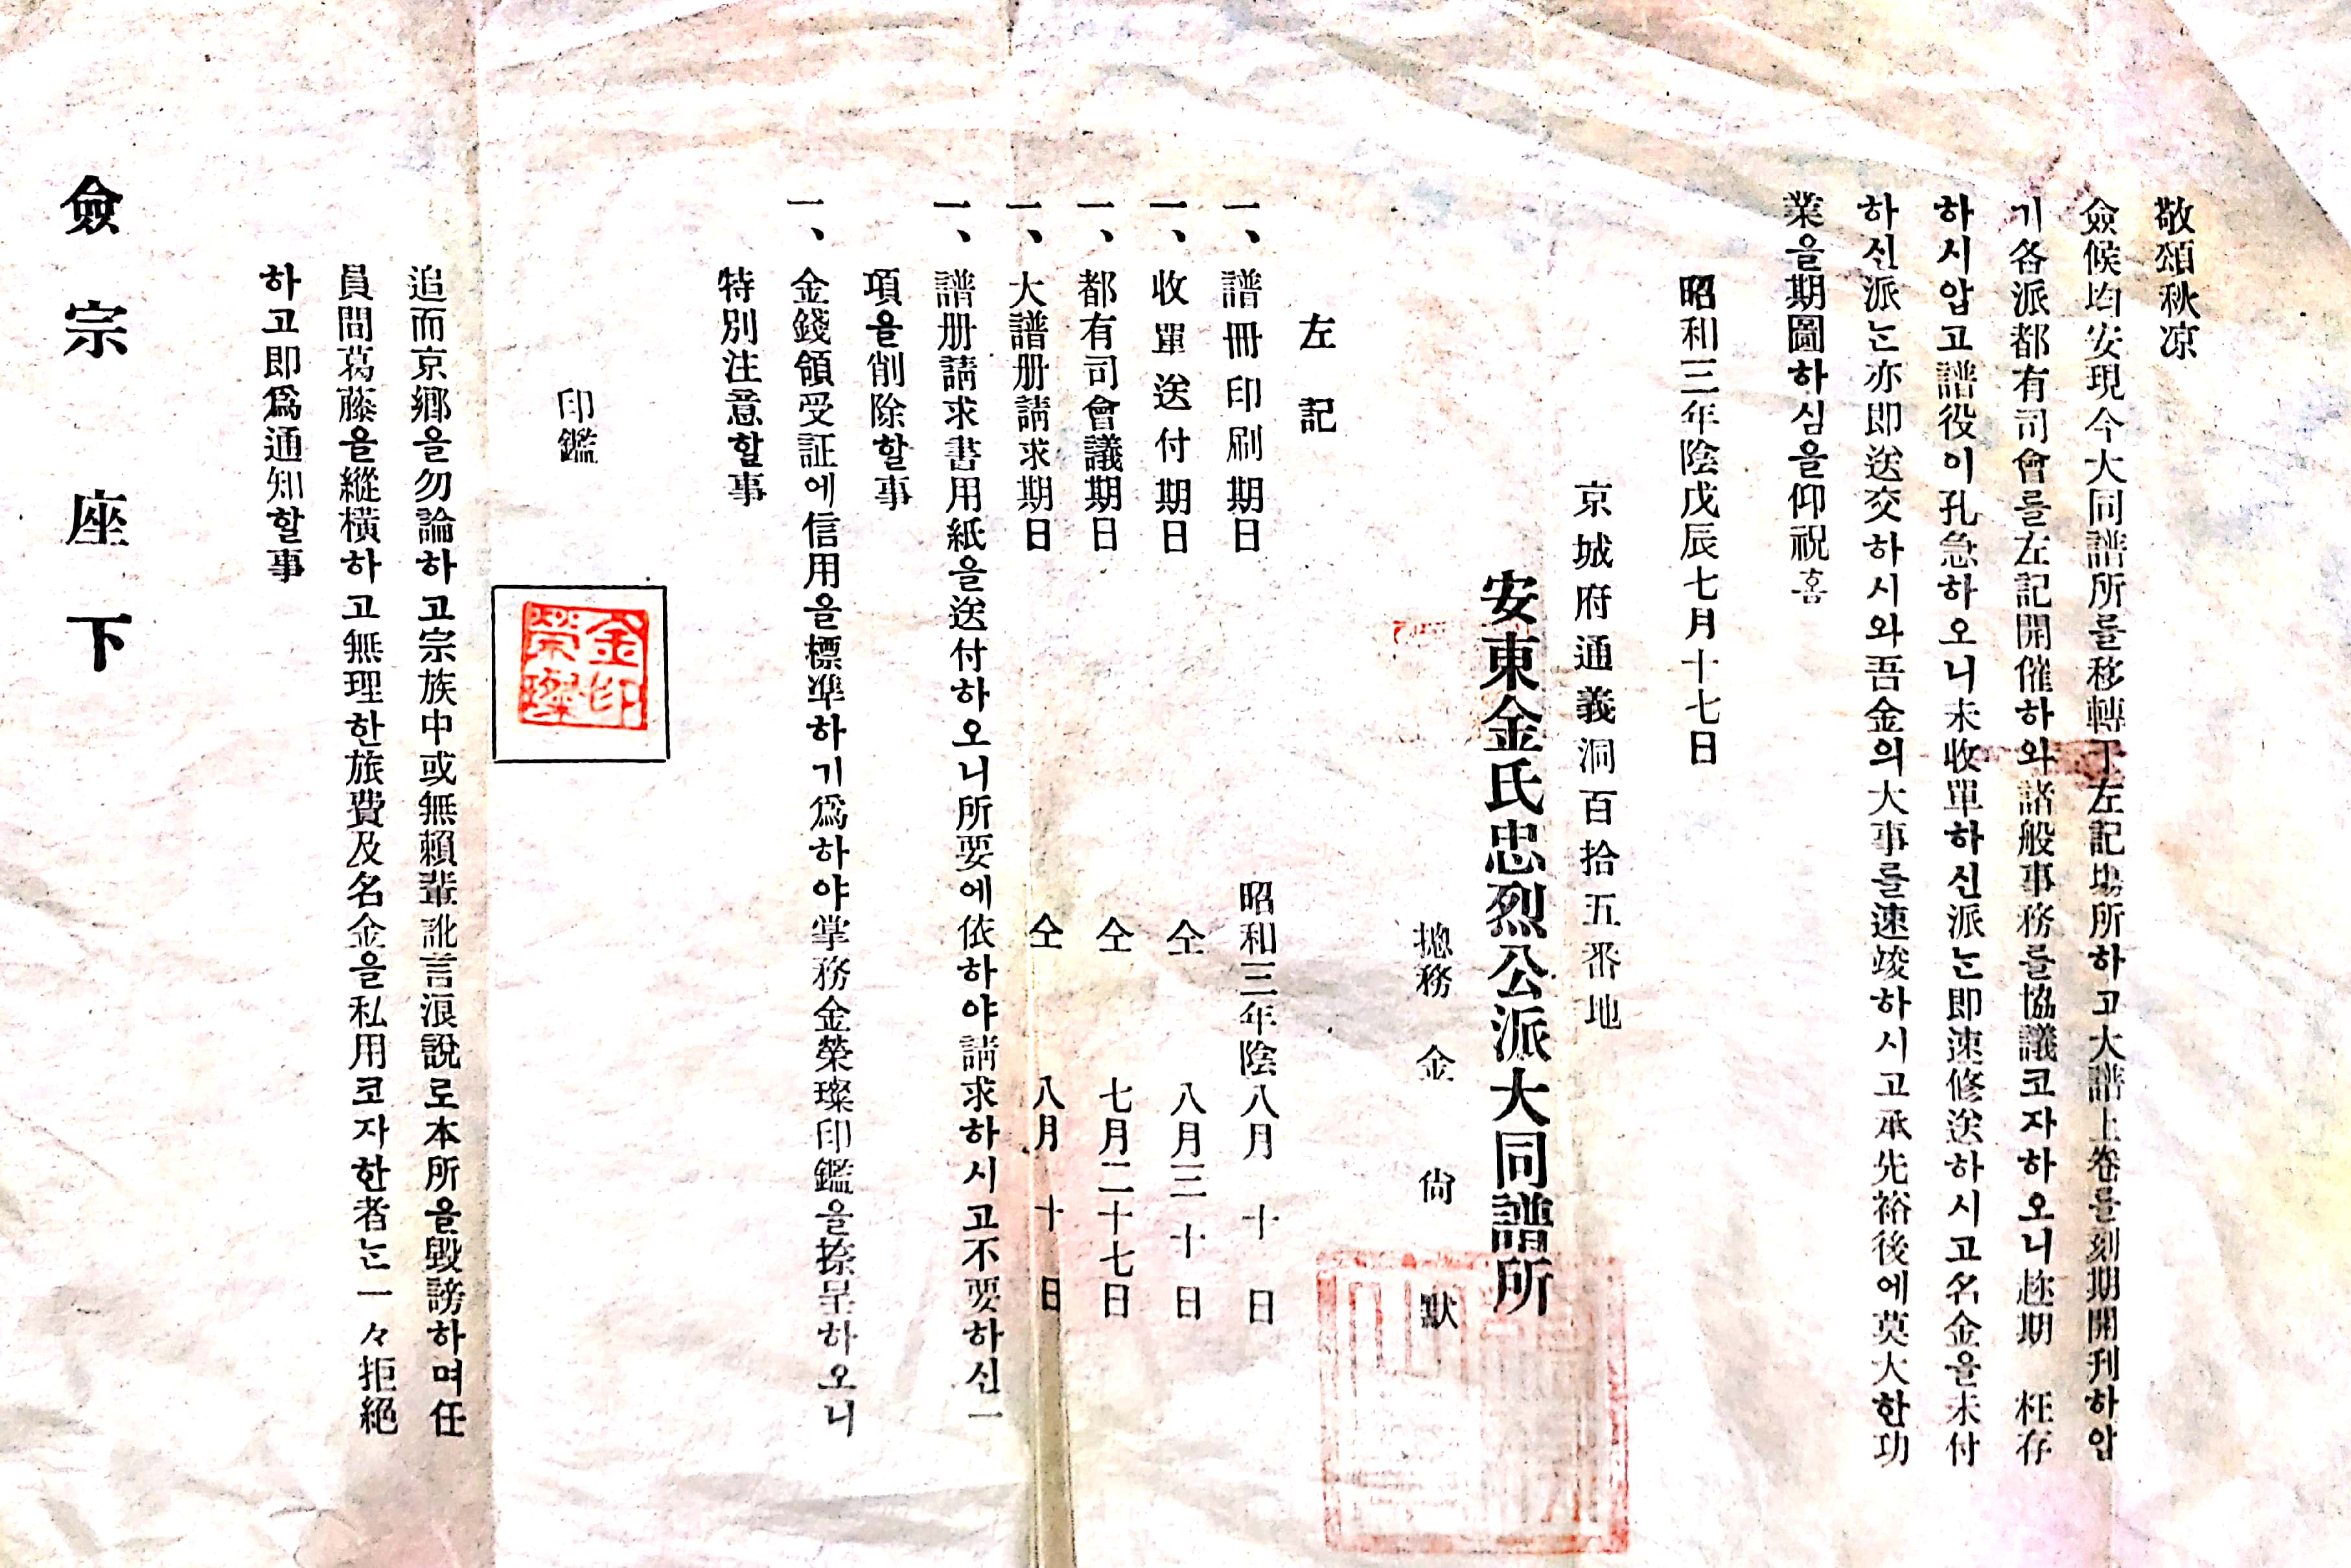 敬頌秋凉
僉候均安現今大同譜所를移轉于左記場所하고大譜上卷를刻期開刊하압
기各派都有司會를左記開催하와諸般事務를協議코자하오니趂期 枉存
하시압고譜役이孔急하오니未收單하신派는即速修送하시고名金을未付
하신派는亦即送交하시와吾金의大事를速竣하시고承先裕後에莫大한功
業을期圖하심을仰祝홈
昭和三年陰戊辰七月十七日
京城府通義洞百拾五番地
安東金氏忠烈公派大同譜所
摠務 金 尙 默
左記
一、譜冊印刷期日 昭和三年陰八月 十 日
一、收單送付期日 仝 八月三十日
一、都有司會議期日 仝 七月二十七日
一、大譜册請求期日 仝 八月 十 日
一、譜册請求書用紙을送付하오니所要에依하야請求하시고不要하신一
項을削除할事
一、金錢領受証에信用을標準하기爲하야掌務金榮璨印鑑을捺呈하오니
特別注意할事
印鑑
金榮璨印
追而京鄕을勿論하고宗族中或無賴輩訛言浪說로本所을毁謗하며任
員間葛藤을縱橫하고無理한旅費及名金을私用코자한者는一々拒絕
하고即爲通知할事
僉宗座下